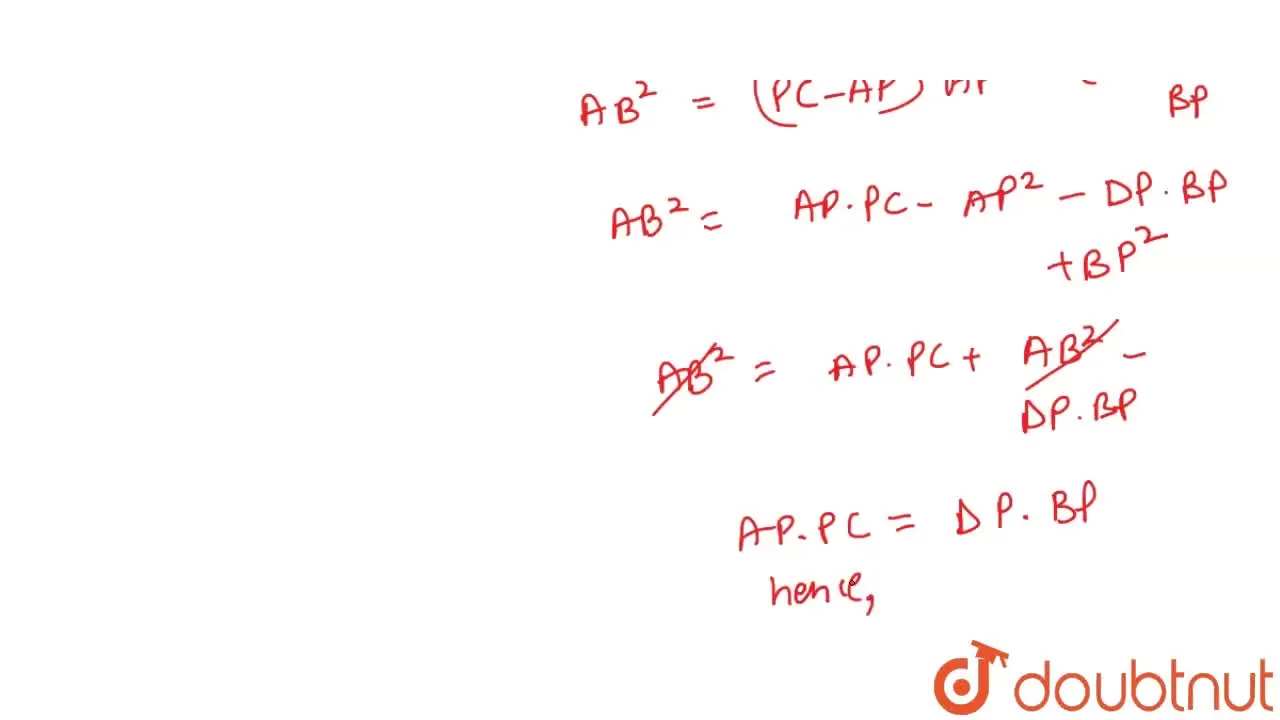 AB² = (PC-AP)
BP
AB² = AP.PC - AP² - DP.BP
+BP²
AB² = AP.PC + AB² -
DP.BP
AP.PC = DP.BP
hence,
doubtnut